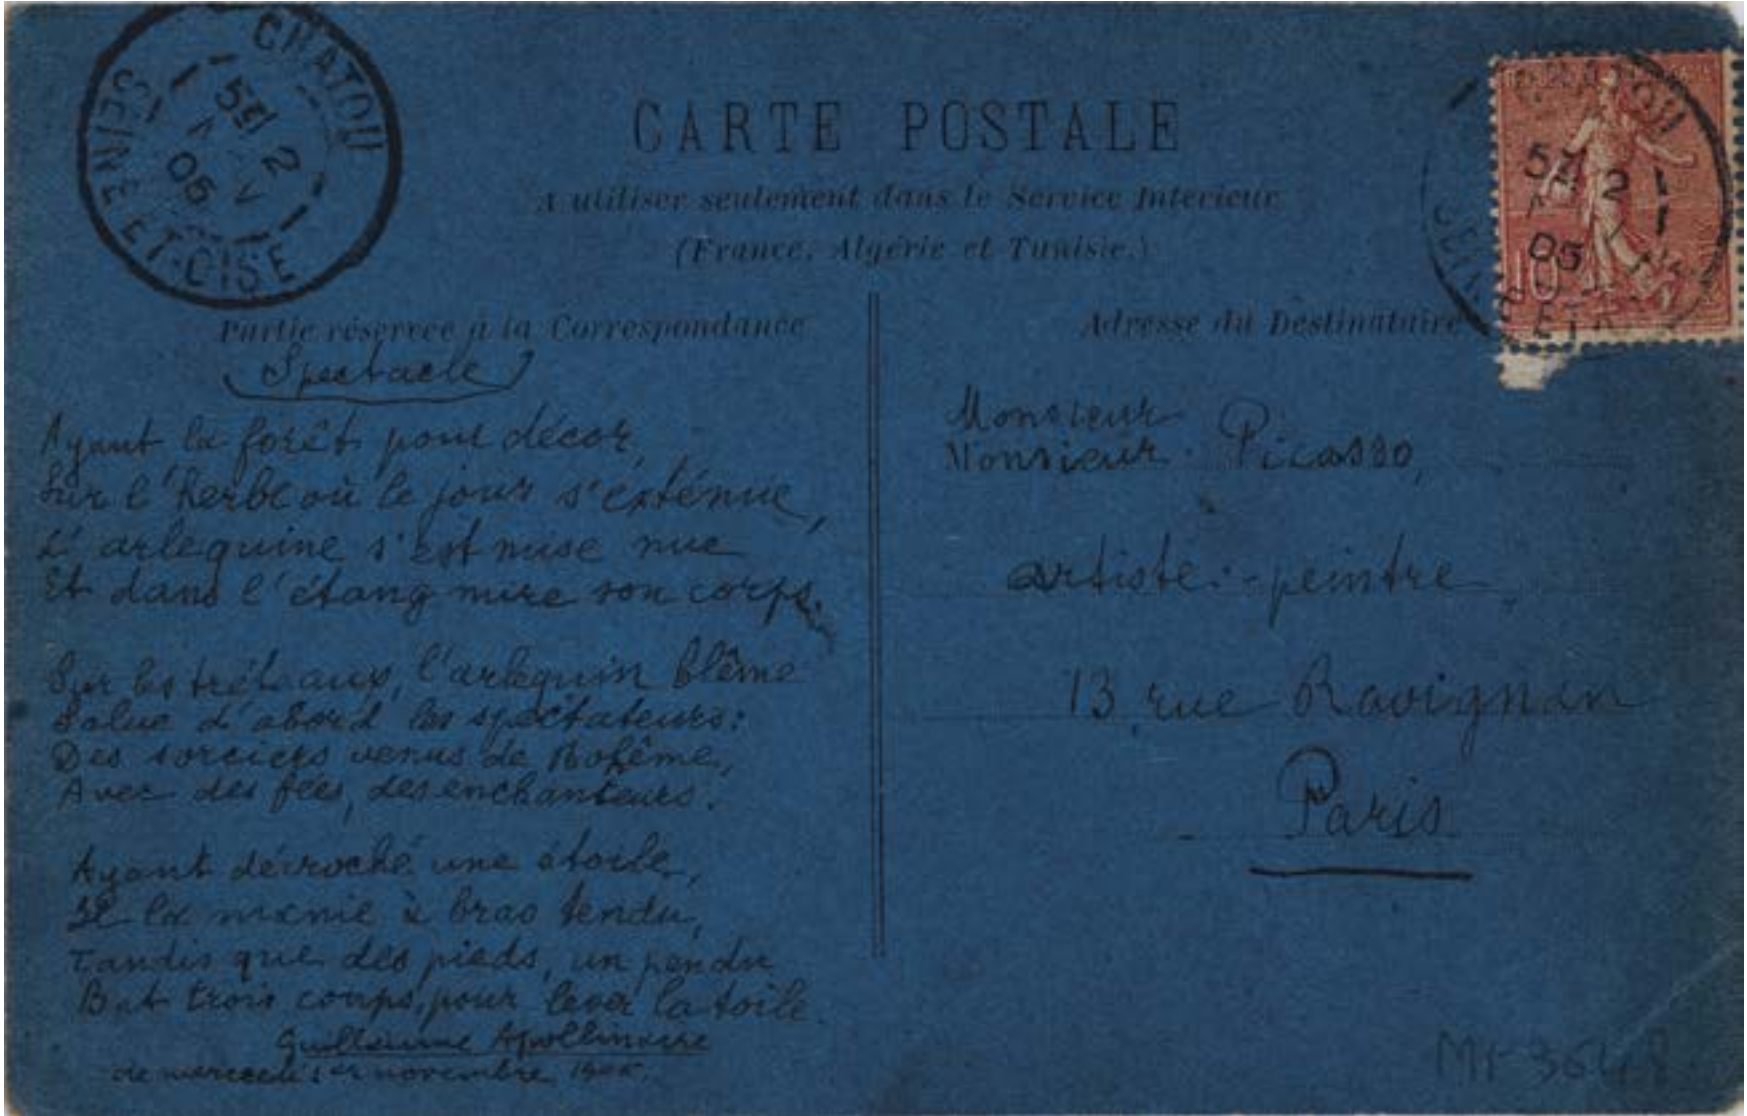 CHATOU
5E 2
05
SEINE-ET-OISE
CARTE POSTALE
A utiliser seulement dans le Service Intérieur
(France, Algérie et Tunisie.)
CHATOU
5E 2
05
SEINE ET
10
Partie réservée à la Correspondance
Spectacle
Ayant la forêt pour décor,
Sur l'herbe où le jour s'exténue,
L'arlequine s'est mise nue
Et dans l'étang mire son corps.
Sur les tréteaux, l'arlequin blême
Salue d'abord les spectateurs:
Des sorciers venus de Bohême,
Avec des fées, des enchanteurs.
Ayant décroché une étoile,
Il la manie à bras tendu,
Tandis que des pieds, un pendu
Bat trois coups, pour lever la toile.
Guillaume Apollinaire
de mercredi 1er novembre 1905.
Adresse du Destinataire
Monsieur
Monsieur Picasso,
artiste-peintre
13, rue Ravignan
Paris